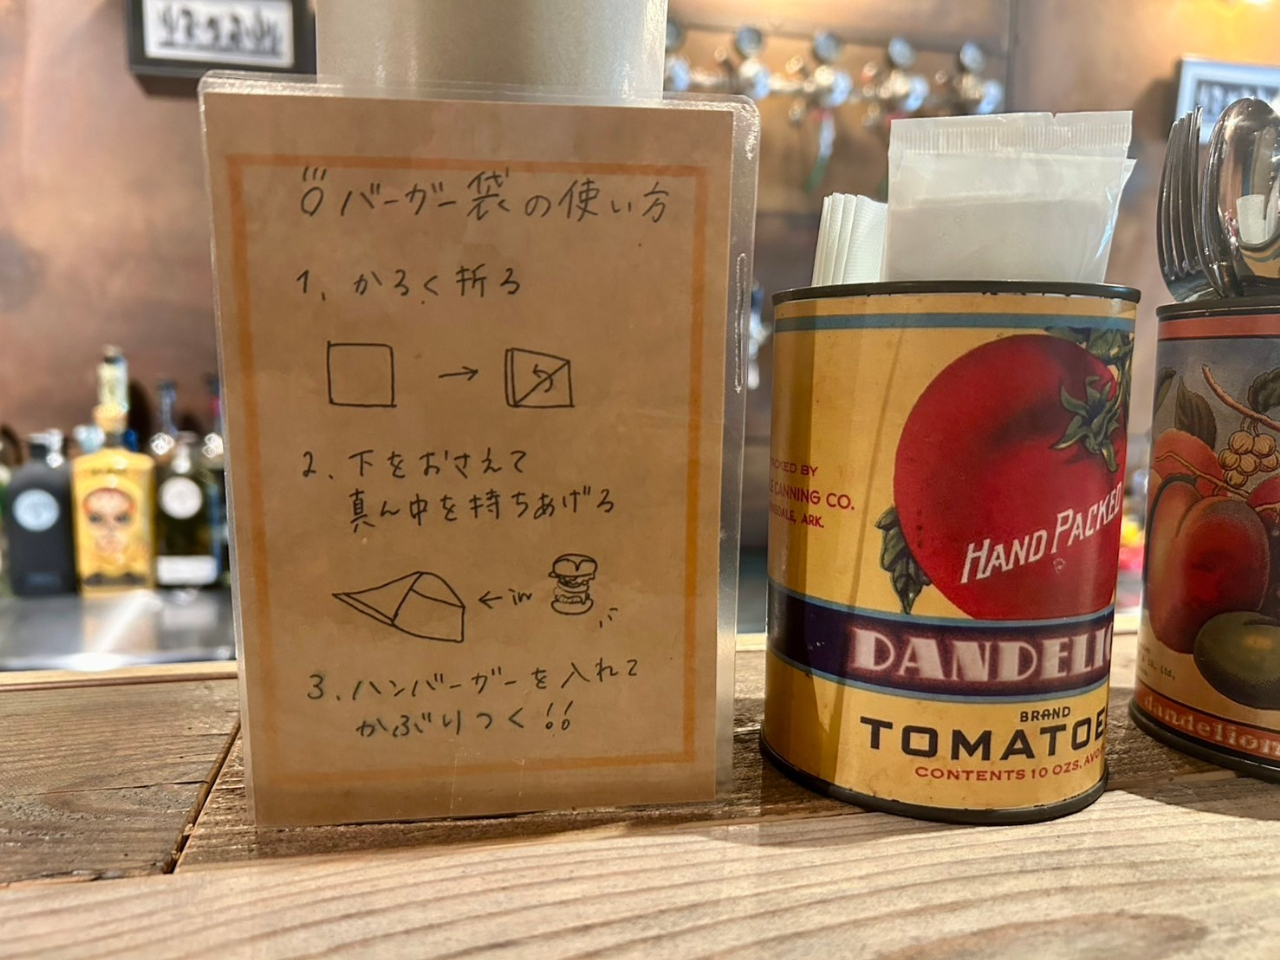 バーガー袋の使い方
1、かるく折る
2、下をおさえて
真ん中を持ちあげる
←in
3、ハンバーガーを入れて
かぶりつく!!
BY
CANNING CO.
ARK.
HAND PACKED
BRAND
CONTENTS 10 OZS.
dandelion